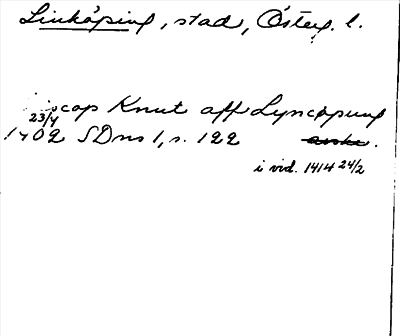 Linköping, stad, Österg. l.
scop Knut aff Lyncøpung
23/4
1402 SDns 1, s. 122 avskr.
i vid. 1414 24/2